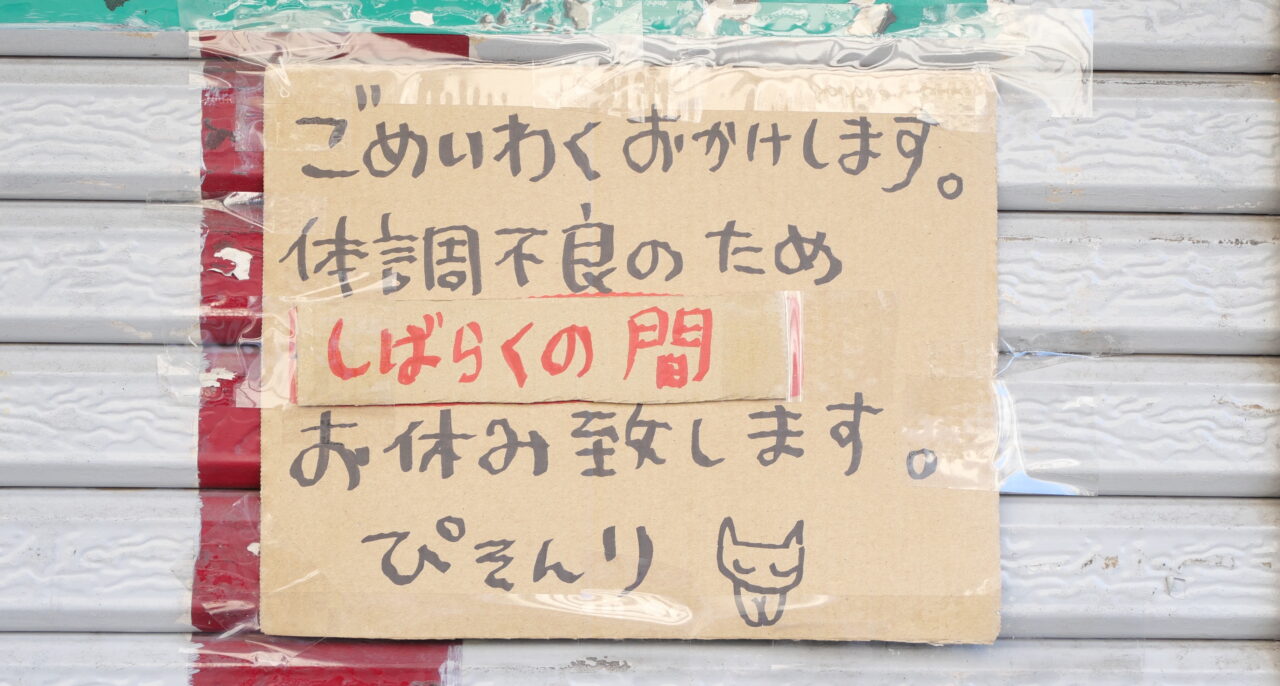 ごめいわくおかけします。
体調不良のため
しばらくの間
お休み致します。
ぴそんり